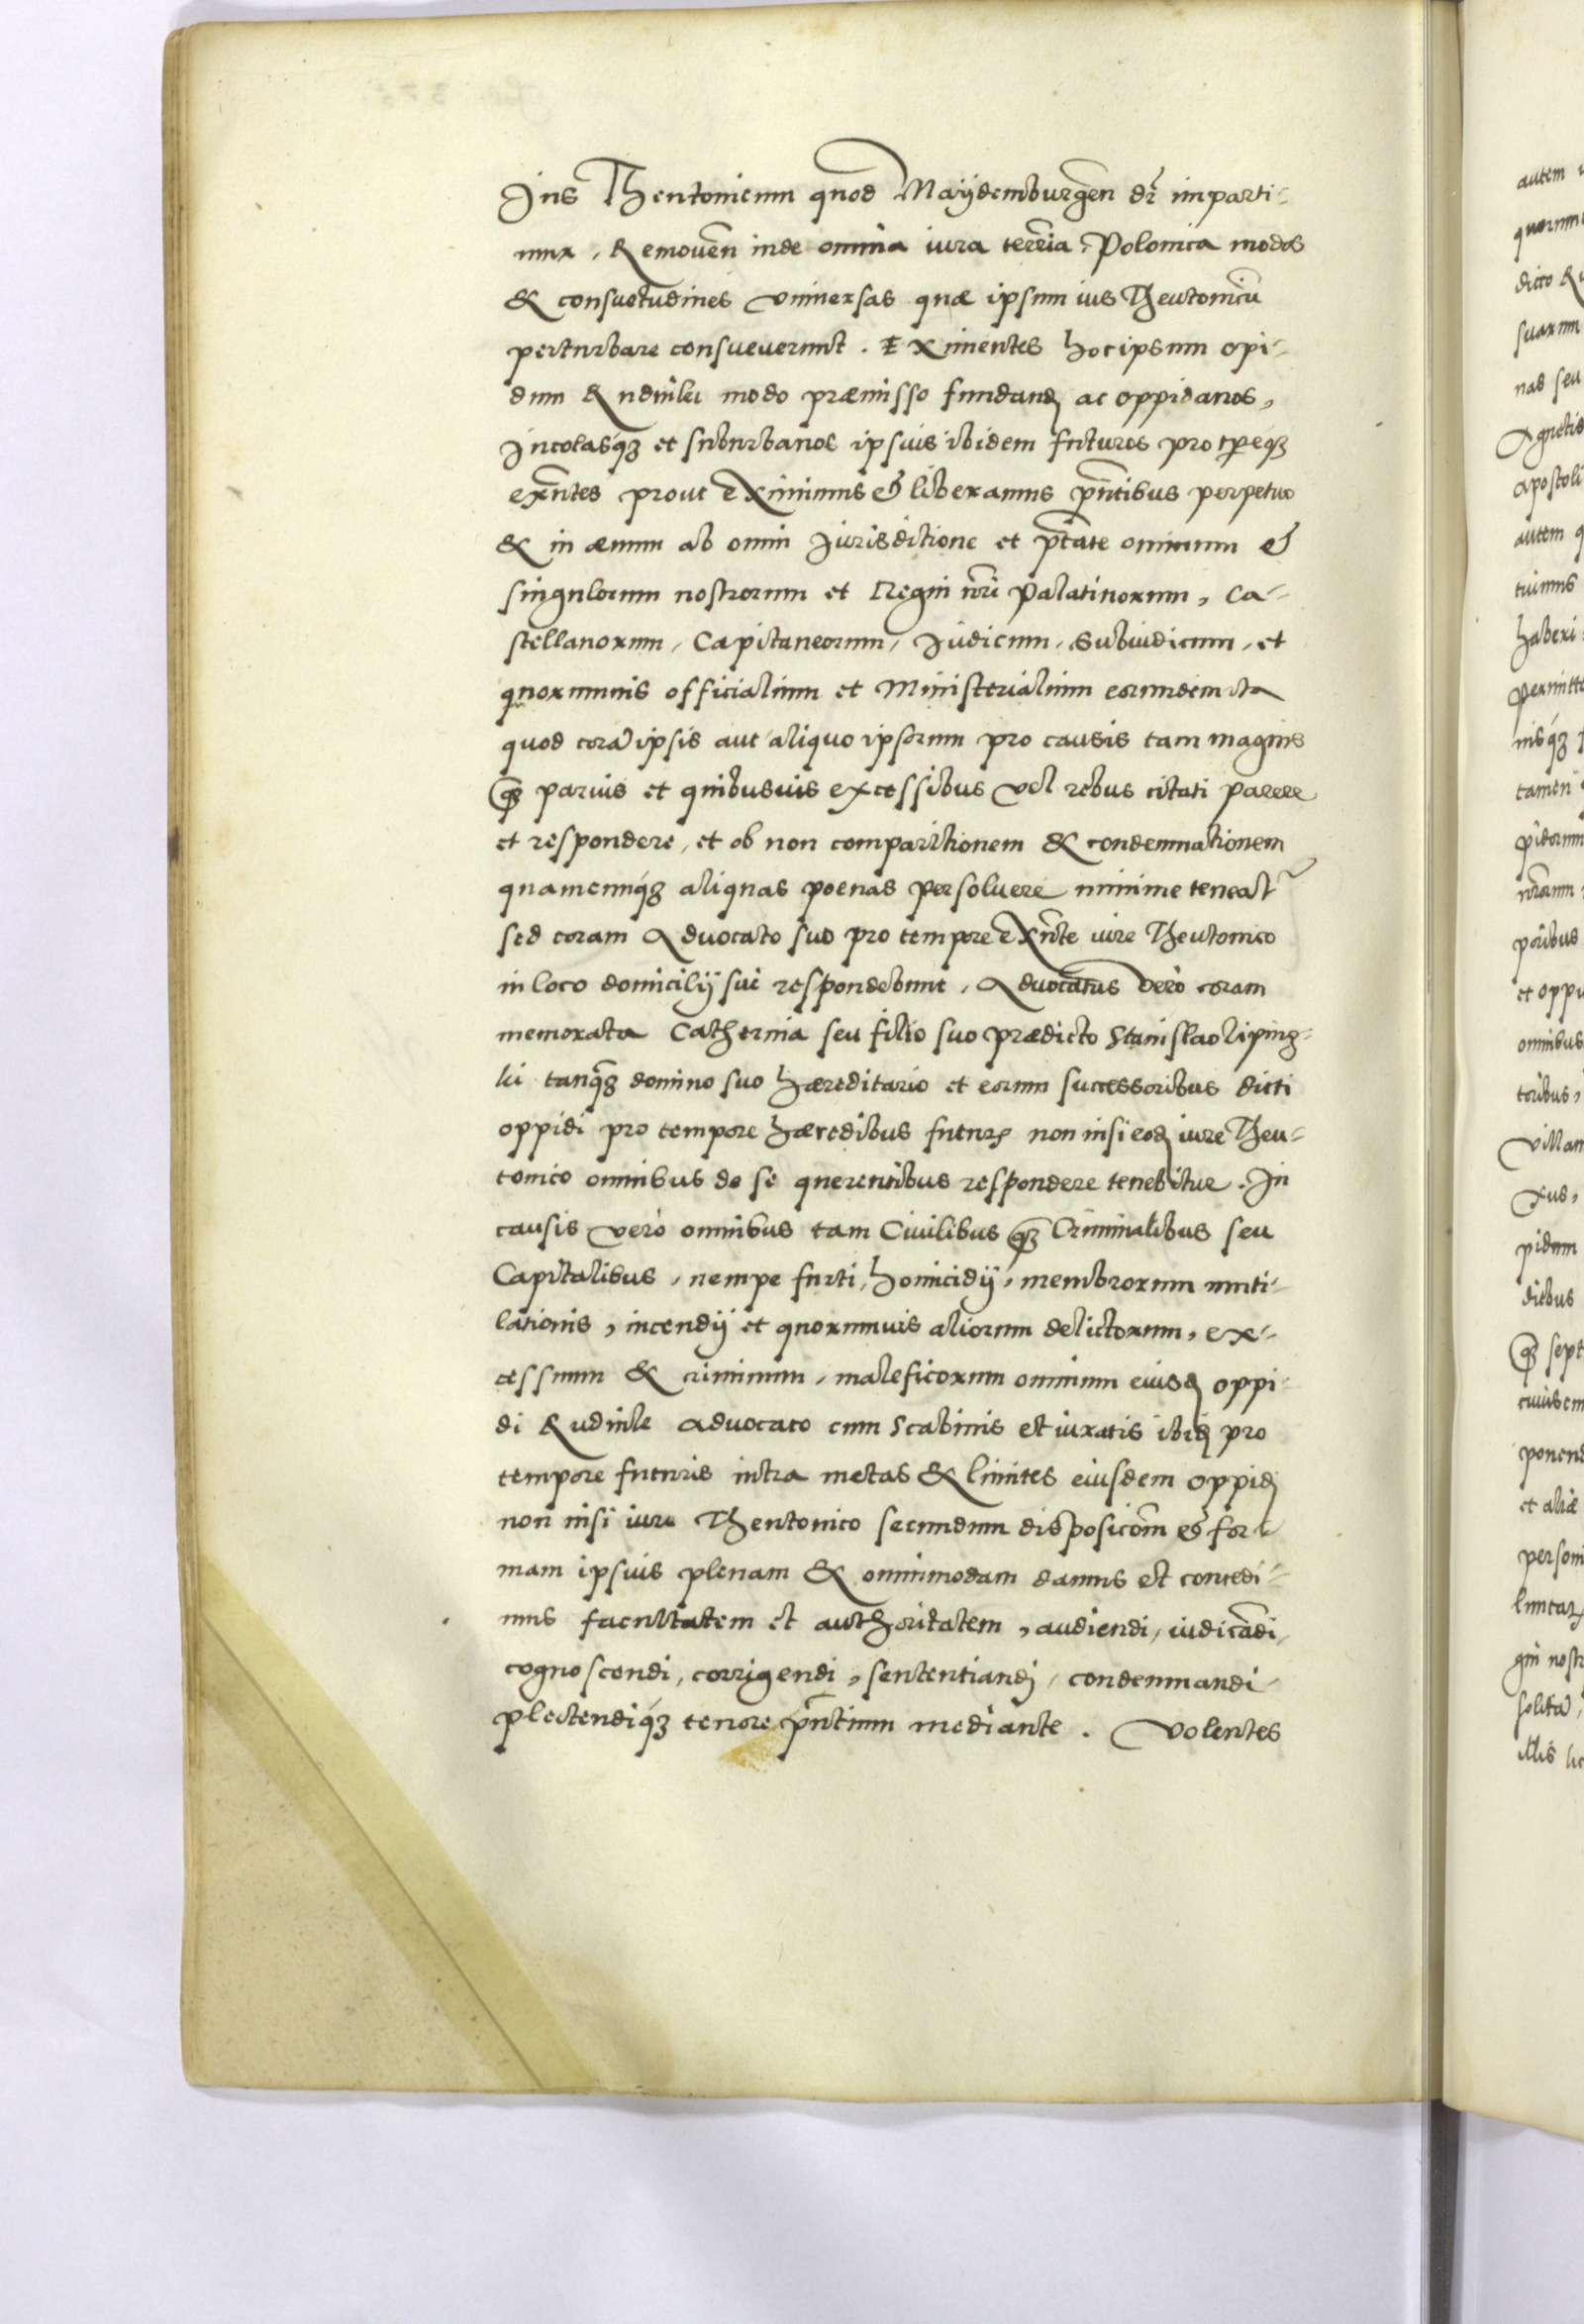 Ius Theutonicum quod Maÿdemburgeñ dr̃ imparti-
mur, Removeñ inde omnia iura terr̃ia, Polonica modos
& consuetudines vniuersas quæ ipsum ius Theutonicũ
perturbare consueuerunt. Eximentes hoc ipsum opi-
dum Rudniki modo præmisso fundanđ ac oppidanos,
Incolasq́ꝫ et suburbanos ipsius ibidem futuros pro tpr̃eqꝫ
exñtes prout Eximimus et liberamus pñtibus perpetuo
& in æuum ab omni Iurisditione et ptãte omnium et
singulorum nostrorum et Regni nr̃i Palatinorum, Ca-
stellanorum, Capitaneorum, Iudicum, Subiudicum, et
quorumuis officialium et Ministerialium eorundem ita
quod corã ipsis aut aliquo ipsorum pro causis tam magnis
q̃ꝫ paruis et quibusuis excessibus vel rebus citati parere
et respondere, et ob non comparitionem & condemnationem
quamcunq́ꝫ aliquas poenas persoluere minime teneãt
sed coram Aduocato suo pro tempore Exñte iure Theutonico
in loco domicilÿ sui respondebunt, Aduocatus verò coram
memorata Catherina seu filio suo prædicto Stanislao liping-
ki tanq̃ꝫ domino suo hæreditario et eorum successoribus dicti
oppidi pro tempore hæredibus futurꝭ non nisi eodꝫ iure Theu-
tonico omnibus de se querentibus respondere tenebitur. In
causis verò omnibus tam Ciuilibus q̃ꝫ Criminalibus seu
Capitalibus, nempe furti, homicidÿ, membrorum muti-
lationis, incendÿ et quorumuis aliorum delictorum, ex-
cessuum & criminum, maleficorum omnium eiusdꝫ oppi-
di Rudnile aduocato cum Scabinis et iuratis ibidꝫ pro
tempore futuris intra metas & limites eiusdem oppidj
non nisi iure Theutonico secundum disposicõm et for-
mam ipsius plenam & omnimodam damus et concedi-
mus facultatem et authoritatem, audiendi, iudicãdi,
cognoscendi, corrigendi, sententiandj, condemnandi
plectendiq́ꝫ tenore pñtium mediante. Volentes
autem
dicto
suarum
nas seu
Agnetis
apostoli
autem
tuimus
haberi
permitt
nisq́ꝫ
tamen
et oppi
omnibus
toribus,
villam
xus,
pidum
diebus
q̃ꝫ sept
ponend
et aliæ
person
gni nostr
illis lic